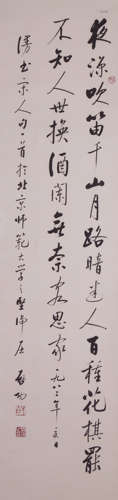 夜涼吹笛千山月路暗迷人百種花棋罷
不知人世換酒闌無奈客思家 一九八年日
漫書宋人句一首於北京師範大學之堅淨居 啟功